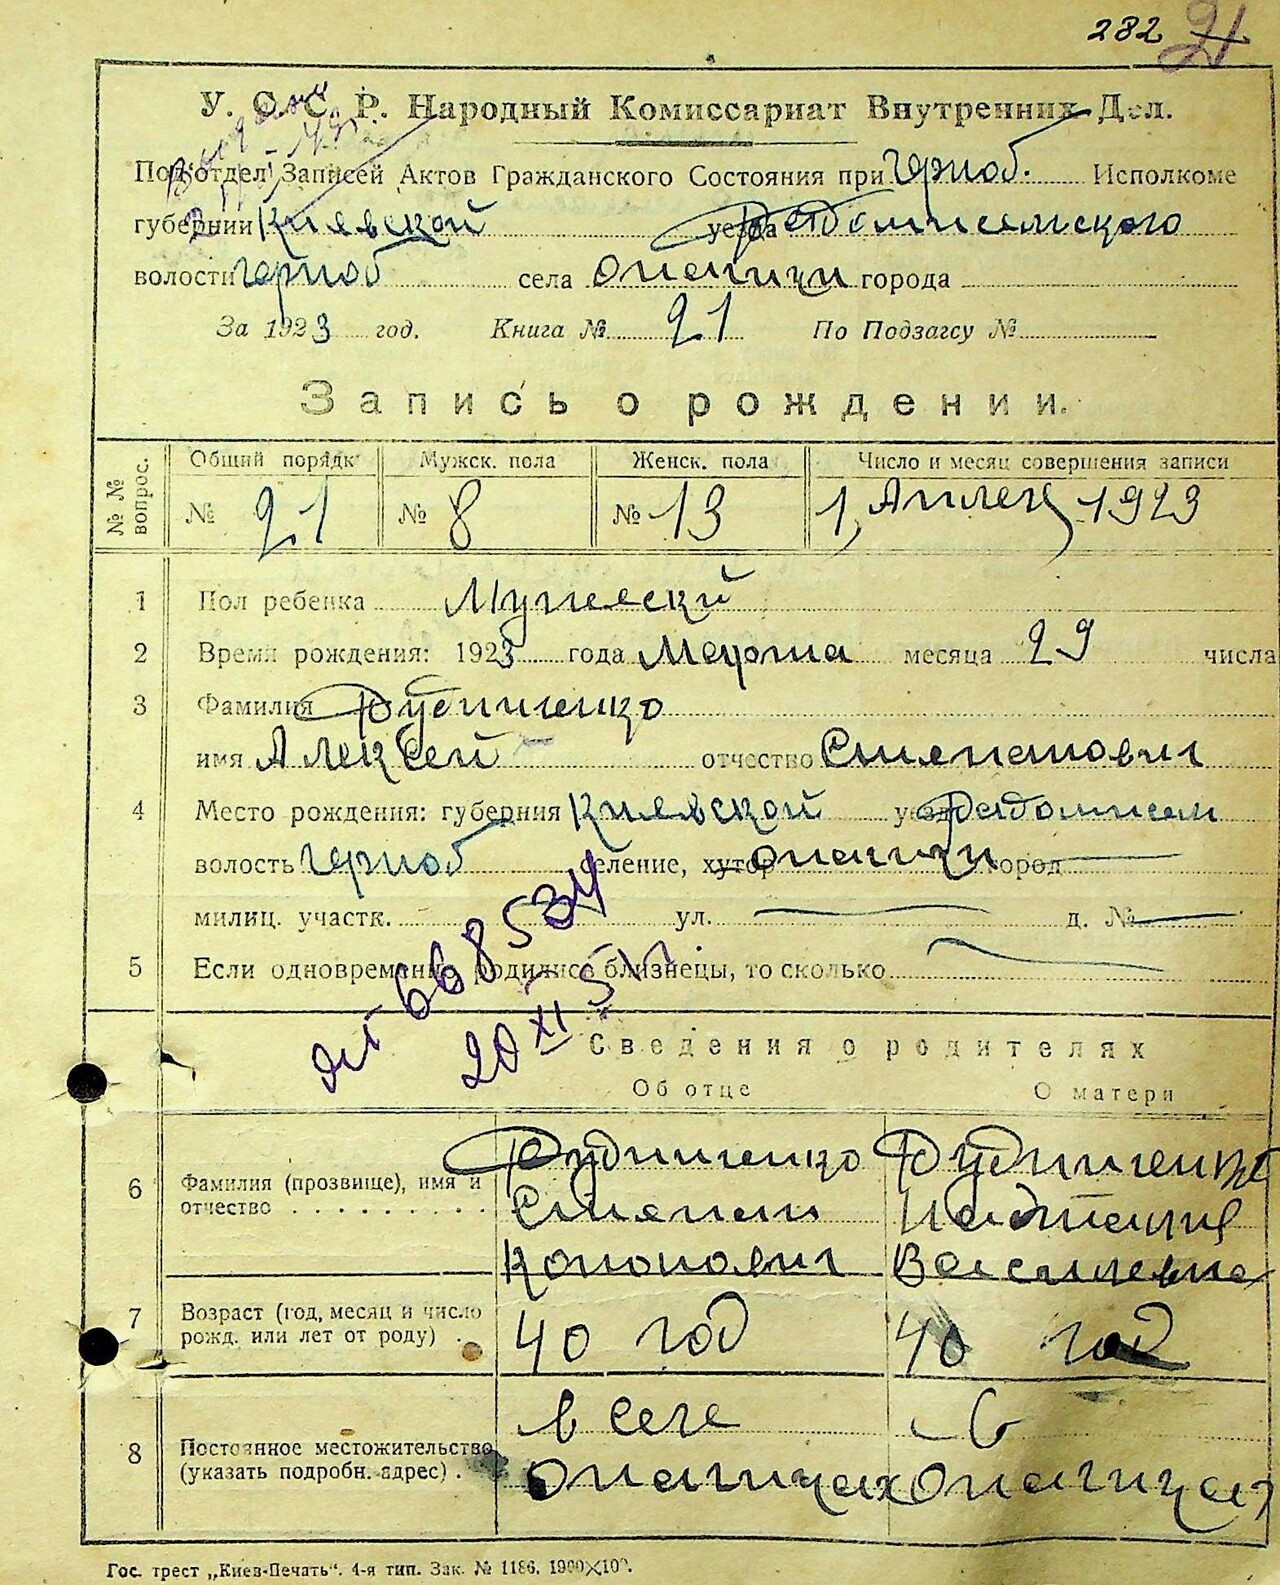 282 21
У. С. С. Р. Народный Комиссариат Внутренних Дел.
Под'отдел Записей Актов Гражданского Состояния при Черноб. Исполкоме
губернии Киевской уезда Радомисельского
волости Черноб села Опачичи города
За 1923 год. Книга № 21 По Подзагсу №
Запись о рождении.
№ № вопрос.
Общий порядк Мужск. пола Женск. пола Число и месяц совершения записи
№ 21 № 8 № 13 1, Апреля 1923
1 Пол ребенка Мужеский
2 Время рождения: 1923 года Марта месяца 29 числа
3 Фамилия Рудниченко
имя Алексей отчество Степанович
4 Место рождения: губерния Киевской уезд Радомисел
волость Черноб селение, хутор Опачичи город
милиц. участк. ул. д. №
5 Если одновременно родились близнецы, то сколько
668534
20 XI
Сведения о родителях
Об отце О матери
6 Фамилия (прозвище), имя и отчество
Рудниченко Степан Кононович
Рудниченко Васильевна
7 Возраст (год, месяц и число рожд. или лет от роду)
40 год 40 год
8 Постоянное местожительство (указать подробн. адрес)
в селе Опачичах
в Опачичах
Гос. трест „Киев-Печать“. 4-я тип. Зак. № 1186. 1900×100.